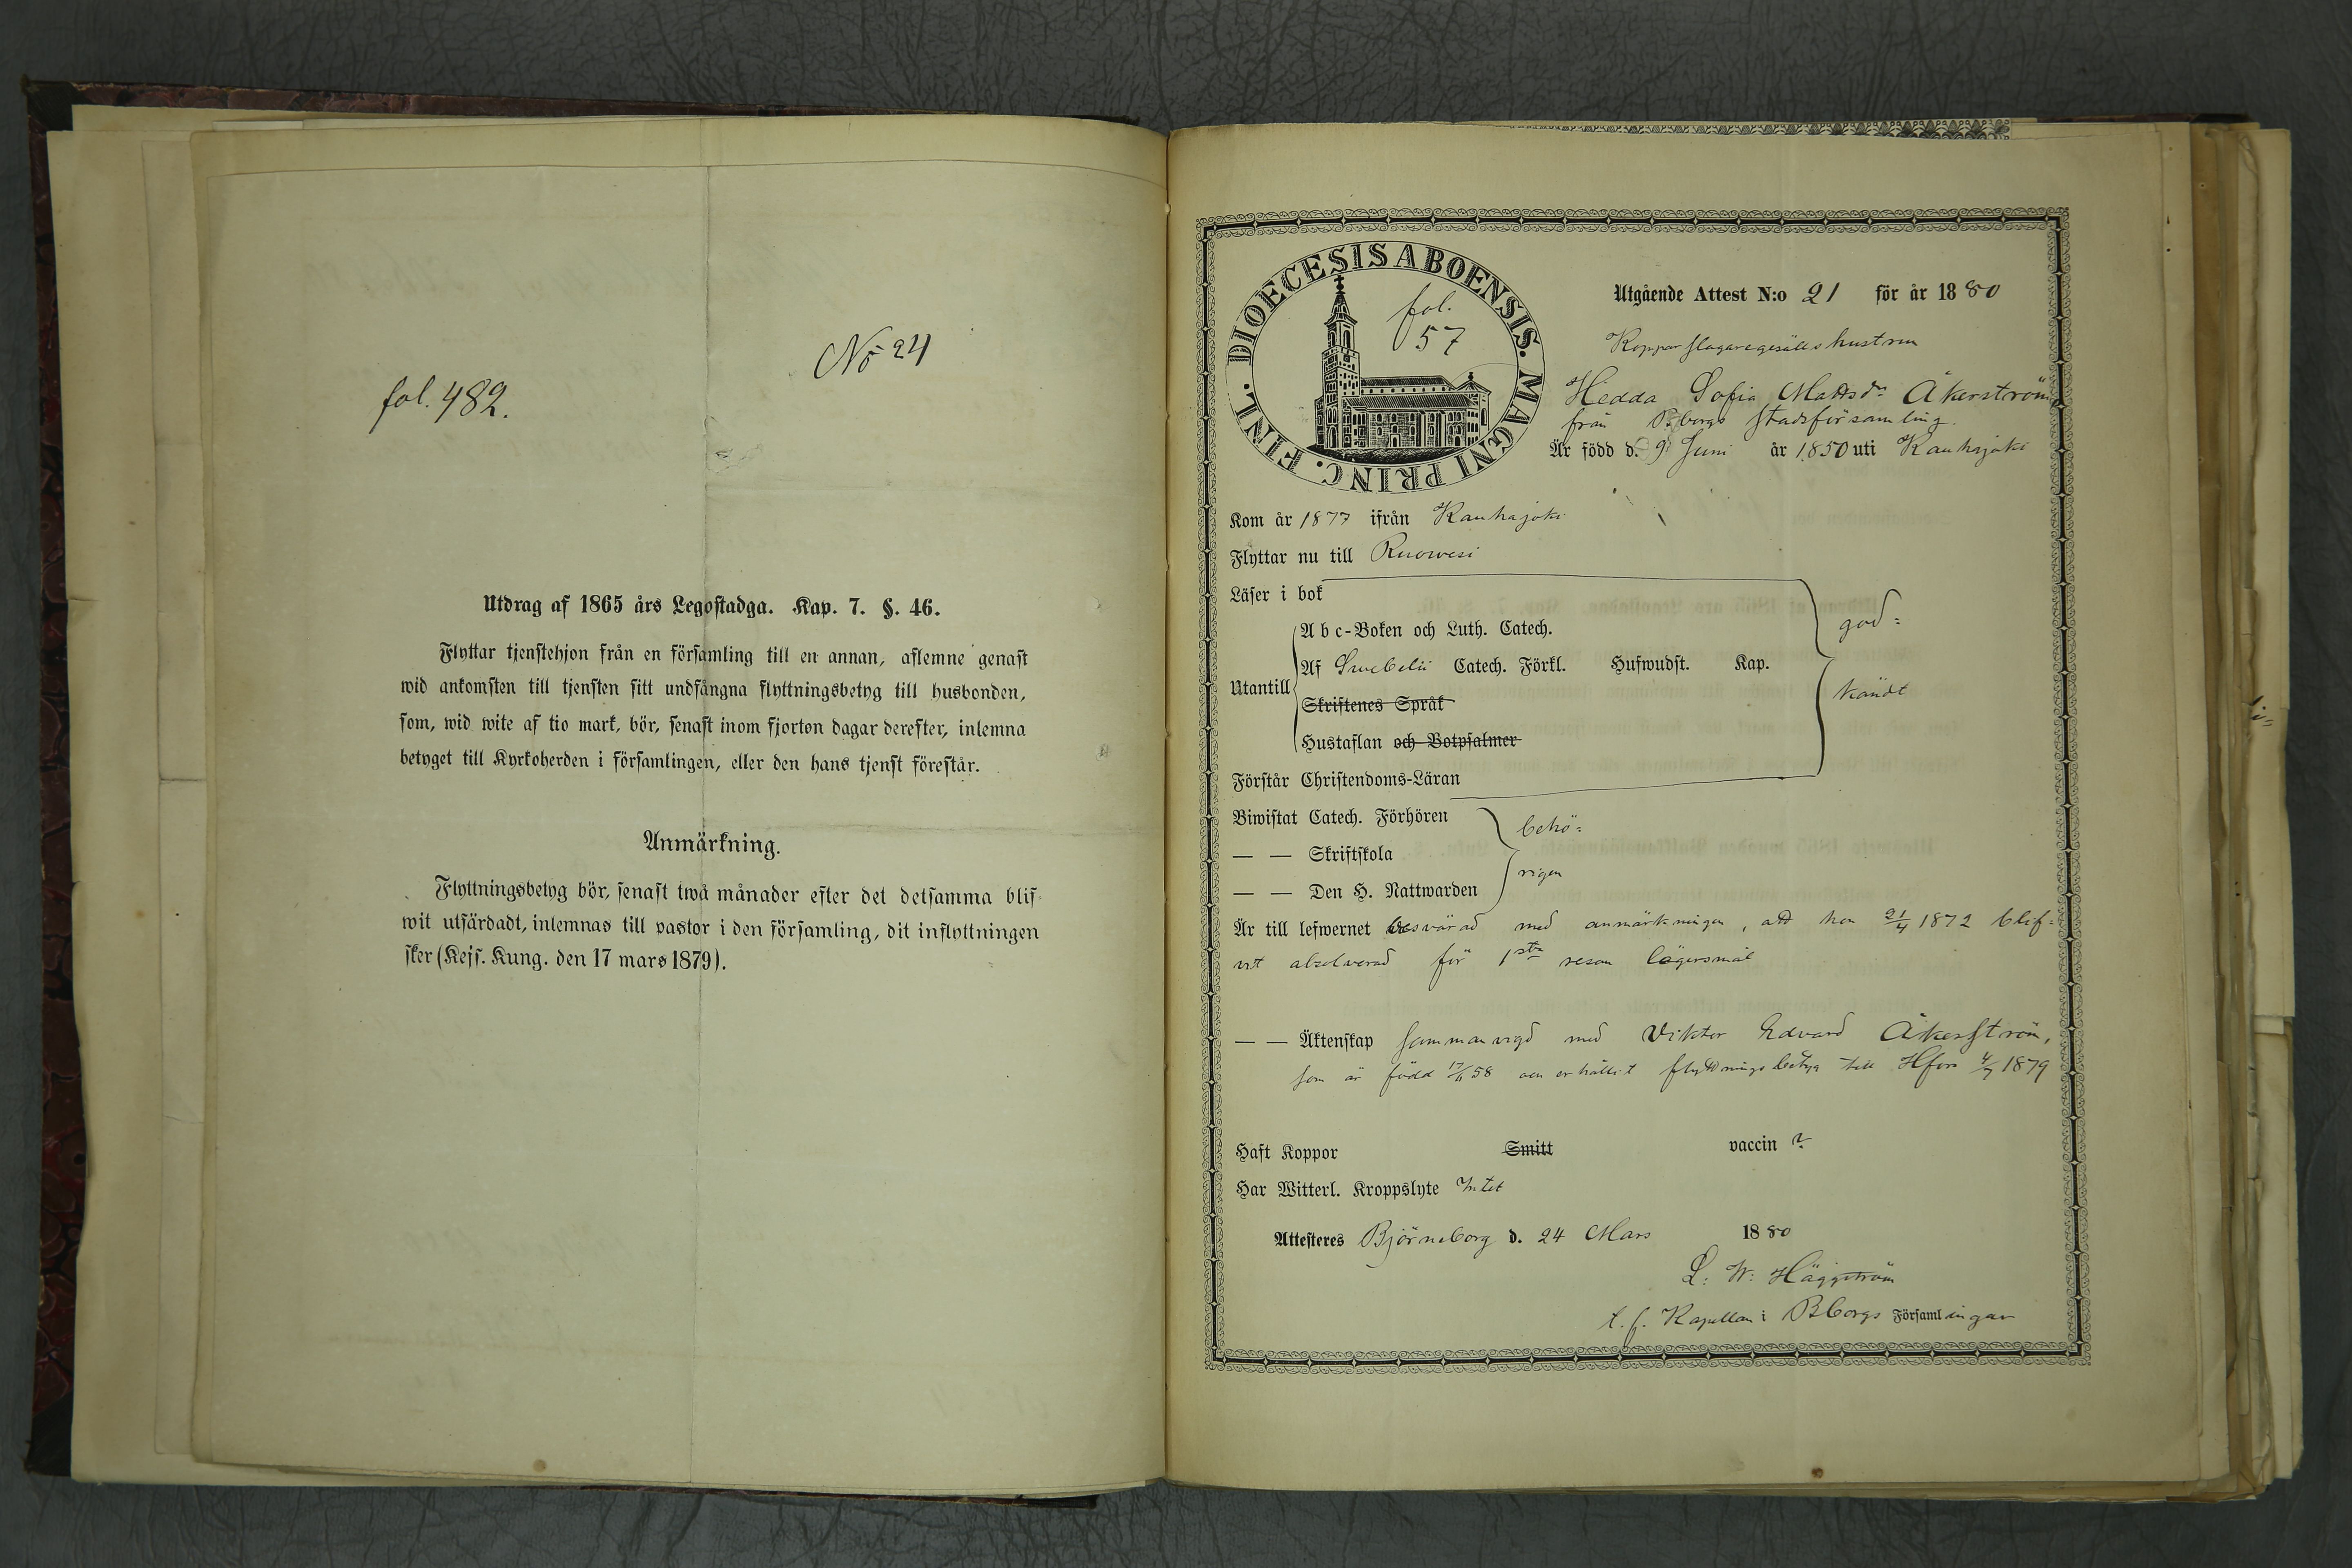 No 24
fol. 482.
Utdrag af 1865 års Legostadga. Kap. 7. §. 46.
Flyttar tjenstehjon från en församling till en annan, aflemne genast
wid ankomsten till tjensten sitt undfångna flyttningsbetyg till husbonden,
som, wid wite af tio mark, bör, senast inom fjorton dagar derefter, inlemna
betyget till Kyrkoherden i församlingen, eller den hans tjenst förestår.
Anmärkning.
Flyttningsbetyg bör, senast twå månader efter det detsamma blif-
wit utfärdadt, inlemnas till pastor i den församling, dit inflyttningen
sker (Kejs. Kung. den 17 mars 1879).
DIOECESIS ABOENSIS. MAGNI PRINC. FINL.
fol.
57
Utgående Attest N:o 21 för år 1880
Kopparslagaregesällshustrun
Hedda Sofia Mattsdr Åkerström
från Bborgs stadsförsamling.
Är född d. 9 Juni år 1850 uti Kauhajoki
Kom år 1877 ifrån Kauhajoki
Flyttar nu till Ruowesi
Läser i bok
Abc-Boken och Luth. Catech.
god=
Af Swebelii Catech. Förkl. Hufwudst. Kap.
Utantill
kändt
Skriftenes Språk
Hustaflan och Botpsalmer
Förstår Christendoms-Läran
Biwistat Catech. Förhören
behö=
— — Skriftskola
rigen
— — Den H. Nattwarden
Är till lefwernet besvärad med anmärkningen, att hon 21/4 1872 blif=
vit absolverad för 1sta resan lägersmål
— — Äktenskap sammanvigd med Viktor Edvard Åkerström,
som är född 17/11 58 och erhållit flyttningsbetyg till Hfors 4/7 1879
Haft Koppor Smitt vaccin ?
Har Witterl. Kroppslyte Intet
Attesteres Björneborg d. 24 Mars 1880
L. W. Häggström
t. f. Kapellan i Bborgs Församlingar